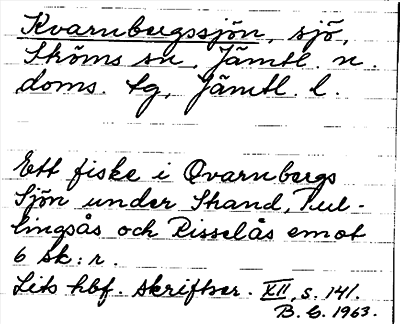 Kvarnbergssjön, sjö,
Ströms sn, Jämtl. n.
doms. tg, Jämtl. l.
Ett fiske i Qvarnbergs
Sjön under Strand, Tul-
lingsås och Risselås emot
6 sk:r.
Lits hbf. skriftser. XII, s. 141.
B. C. 1963.